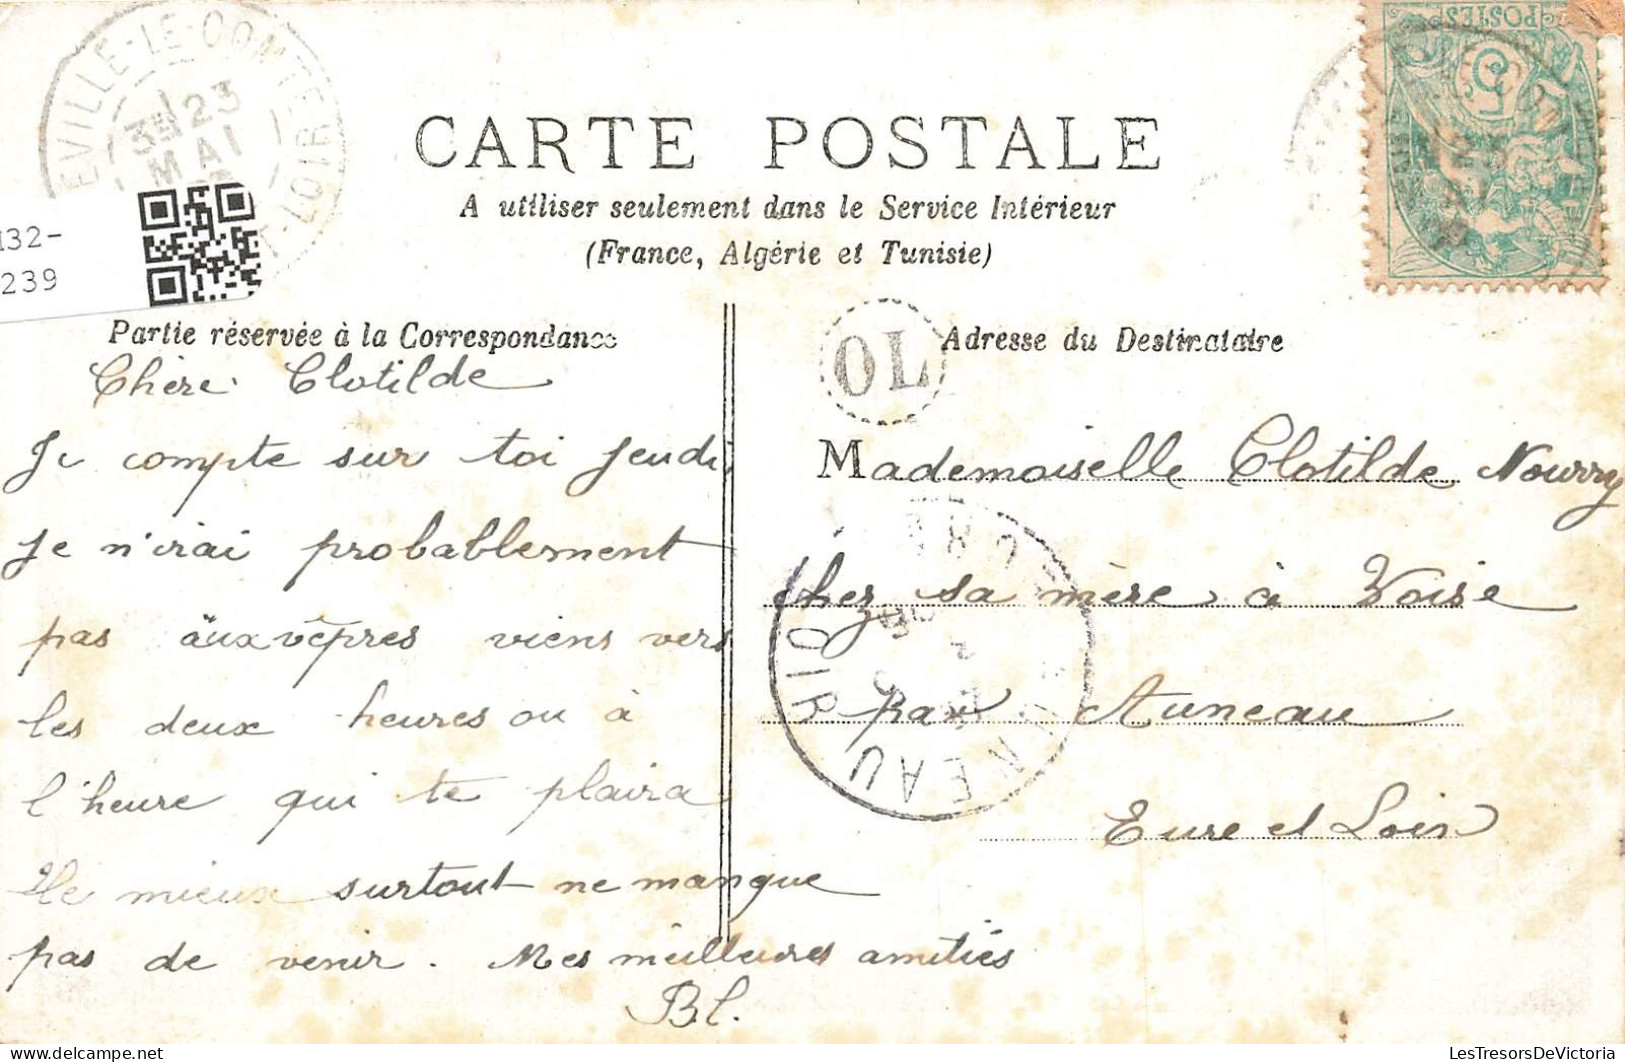 EVILLE-LE-COMTE
3E 23
MAI
T-LOIR
132-
239
CARTE POSTALE
A utiliser seulement dans le Service Intérieur
(France, Algérie et Tunisie)
POSTES
5
Partie réservée à la Correspondance
Adresse du Destinataire
OL
Chère Clotilde
Je compte sur toi jeudi
je n'irai probablement
pas aux vêpres viens vers
les deux heures ou à
l'heure qui te plaira
le mieux surtout ne manque
pas de venir. Mes meilleures amitiés
Bl.
Mademoiselle Clotilde Nourry
chez sa mère à Voise
par Auneau
Eure et Loir
AUNEAU
LesTresorsDeVictoria
delcampe.net